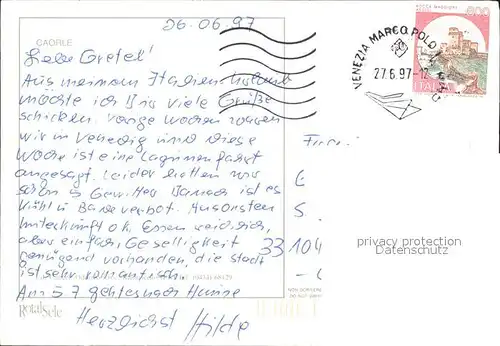 26.06.97
CAORLE
Liebe Gretel!
Aus meinem Italien
möchte ich Dir viele Grüße
schicken. Vorige Wochen waren
wir in Venedig und diese
Woche ist eine Lagunenfahrt
angesagt. Leider hatten wir
schon 5 Gewitter Danach ist es
kühl u Badeverbot. Ansonsten
Unterkunft o.k. Essen
aber einfach, Geselligkeit
genügend vorhanden, die Stadt
ist sehr romantisch.
Am 5 7 geht es nach Hause
Herzlichst Hilde
RotalSele
ROCCA MAGGIORE
600
ITALIA
VENEZIA MARCO POLO
27.6.97-12
33104
privacy protection
watermark